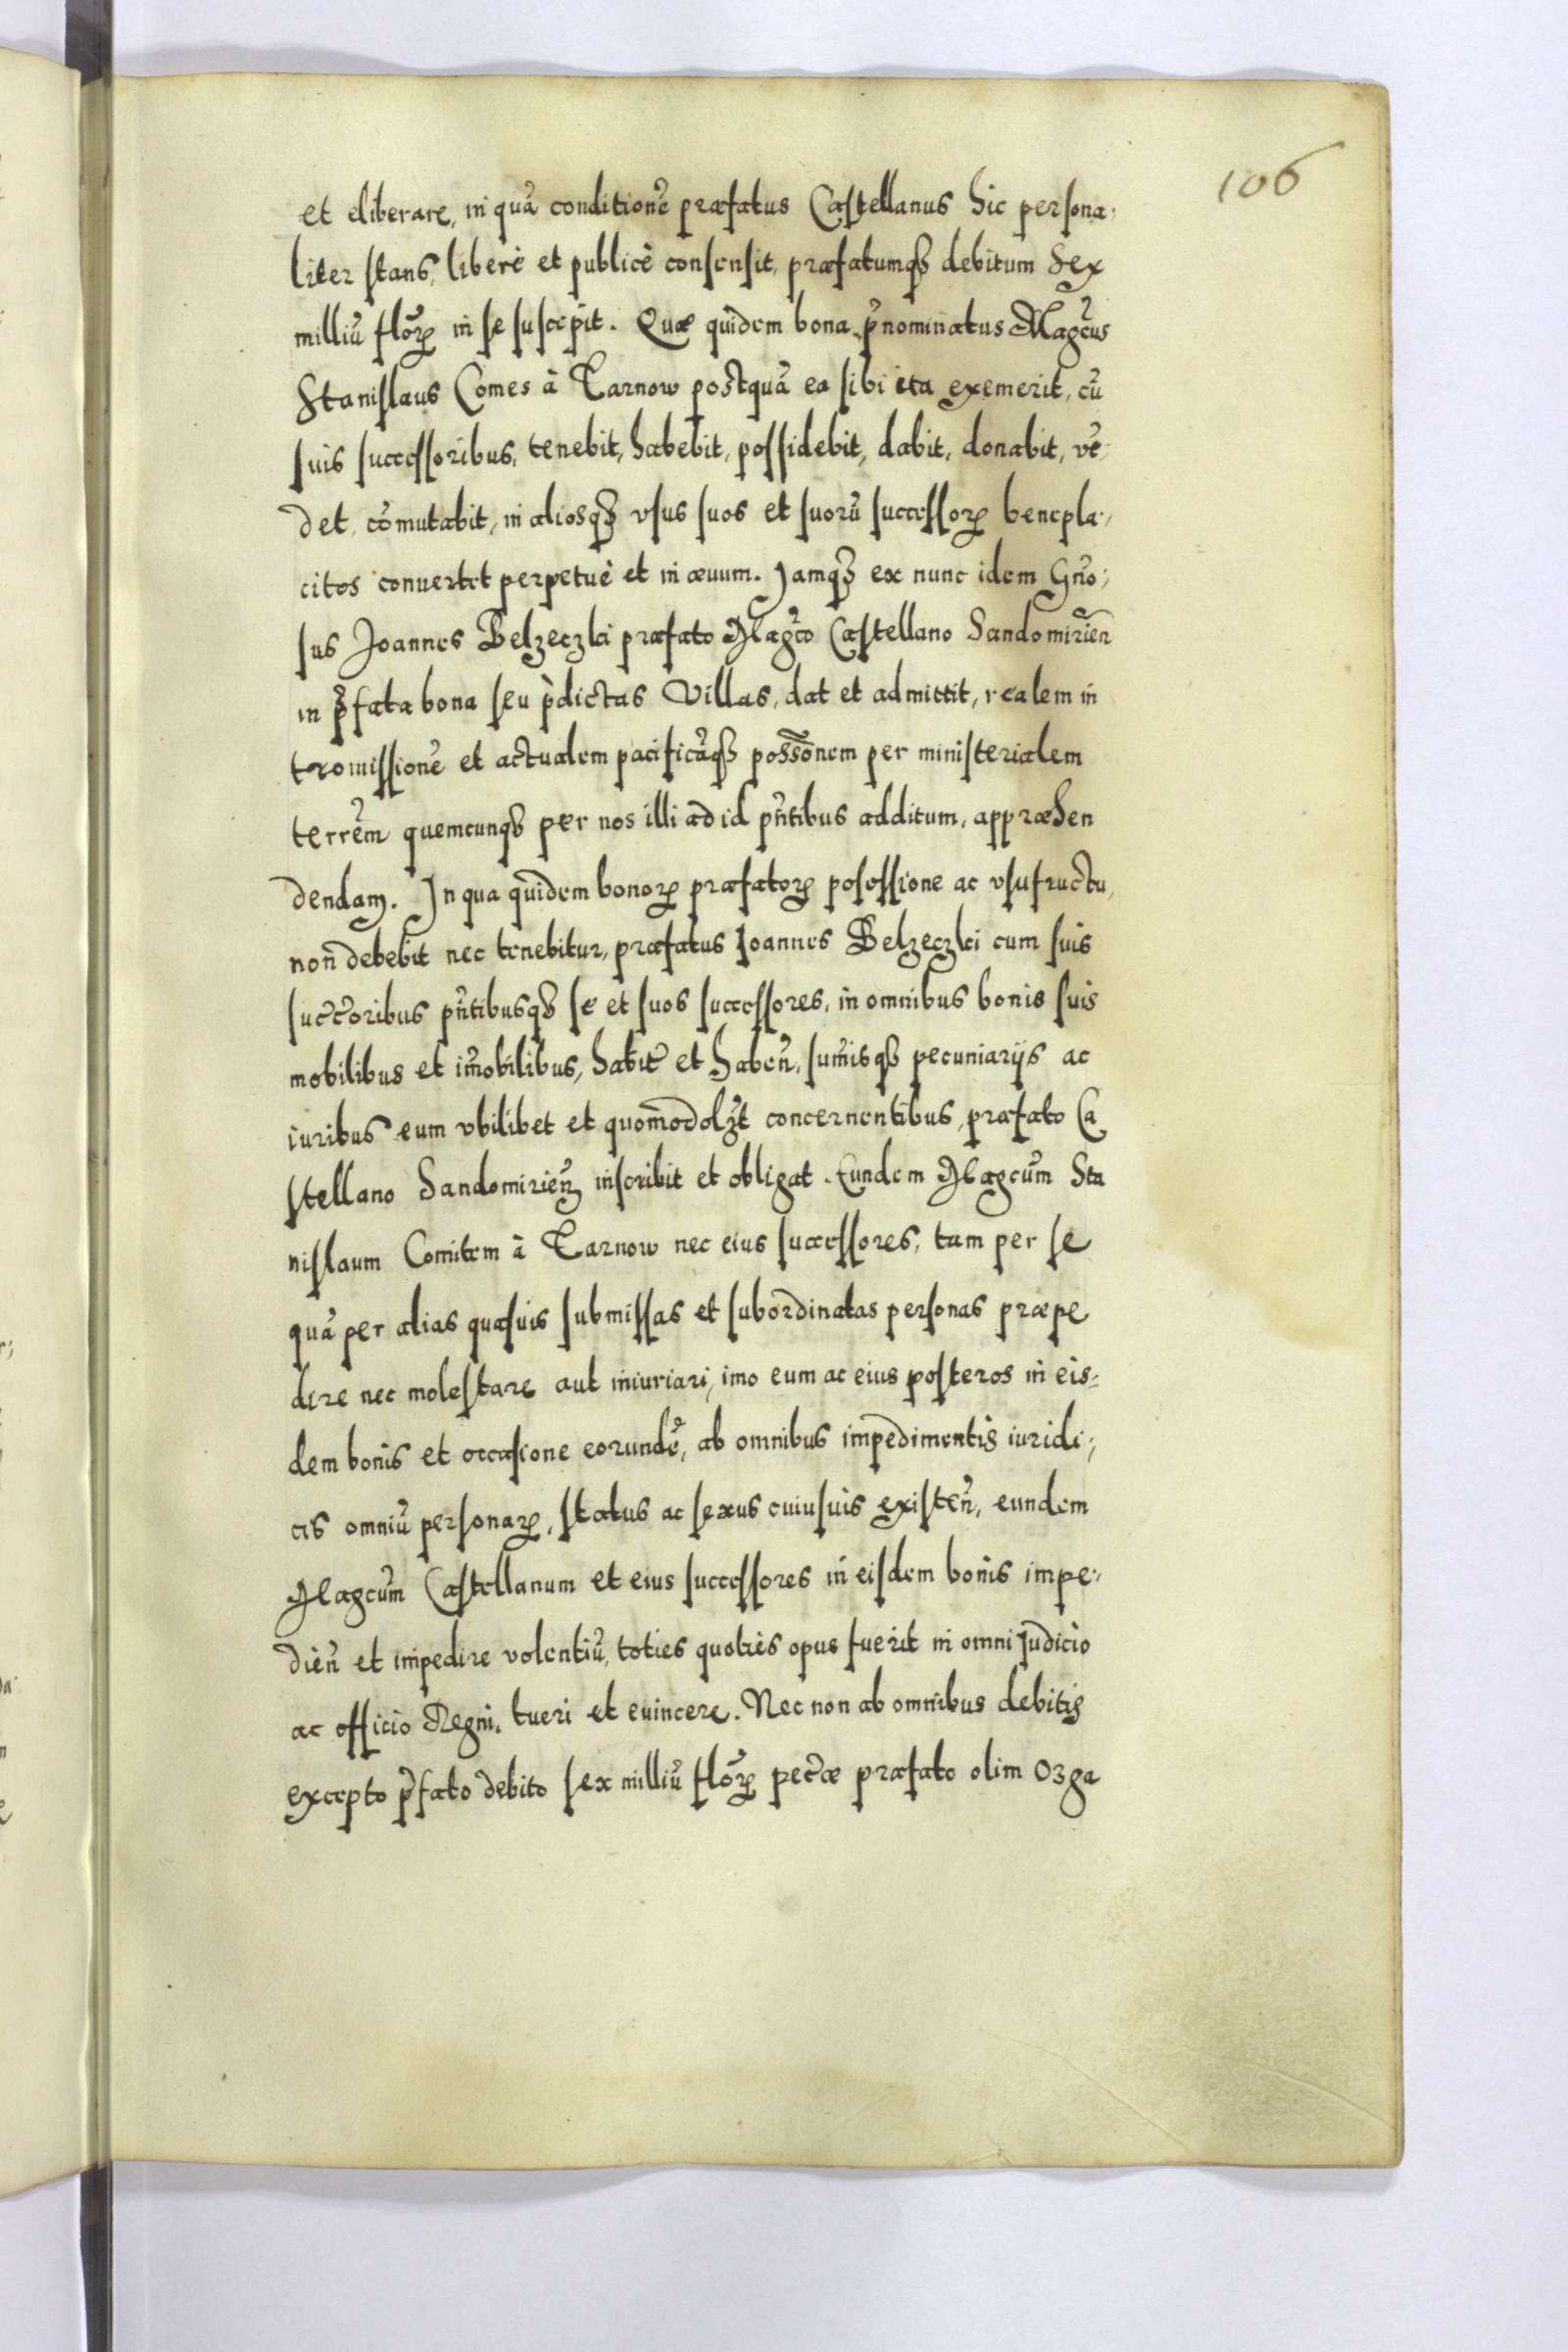 106
et eliberare, in quā conditionē præfatus Castellanus hic persona-
liter stans, liberè et publicè consensit, præfatumqȝ debitum Sex
milliū florꝝ in se suscepit. Quæ quidem bona p̃nominatus Magcus
Stanislaus Comes à Tarnow postquā ea sibi ita exemerit, cū
suis successoribus, tenebit, habebit, possidebit, dabit, donabit, vē-
det, cōmutabit, in aliosqȝ vsus suos et suorū successorꝝ benepla-
citos conuertet perpetuè et in æuum. Jamqȝ ex nunc idem Gño-
sus Joannes Belzeczki præfato Magco Castellano Sandomirieñ
in p̃fata bona seu p̃dictas Villas, dat et admittit, realem in
tromissionē et actualem pacificāqȝ possōnem per ministerialem
terrēm quemcunqȝ per nos illi ad id pñtibus additum, appræhen
dendam. In qua quidem bonorꝝ præfatorꝝ posessione ac vsufructu,
non debebit nec tenebitur, præfatus Joannes Belzeczki cum suis
succoribus pñtibusqȝ se et suos successores, in omnibus bonis suis
mobilibus et im̄obilibus, habit̃ et habeñ, sum̄isqȝ pecuniarijs ac
iuribus eum vbilibet et quomodolȝt concernentibus, præfato Ca
stellano Sandomirieñ inscribit et obligat. Eundem Magcum Sta
nislaum Comitem à Tarnow nec eius successores, tam per se
quā per alias quasuis submissas et subordinatas personas præpe
dire nec molestare aut iniuriari, imo eum ac eius posteros in eis-
dem bonis et occasione eorundē, ab omnibus impedimentis iuridi-
cis omniū personarꝝ, status ac sexus cuiusuis existeñ, eundem
Magcum Castellanum et eius successores in eisdem bonis impe-
dieñ et impedire volentiū, toties quoties opus fuerit in omni Judicio
ac officio Regni, tueri et euincere. Nec non ab omnibus debitis
excepto p̃fato debito sex milliū florꝝ pecæ præfato olim Ozga